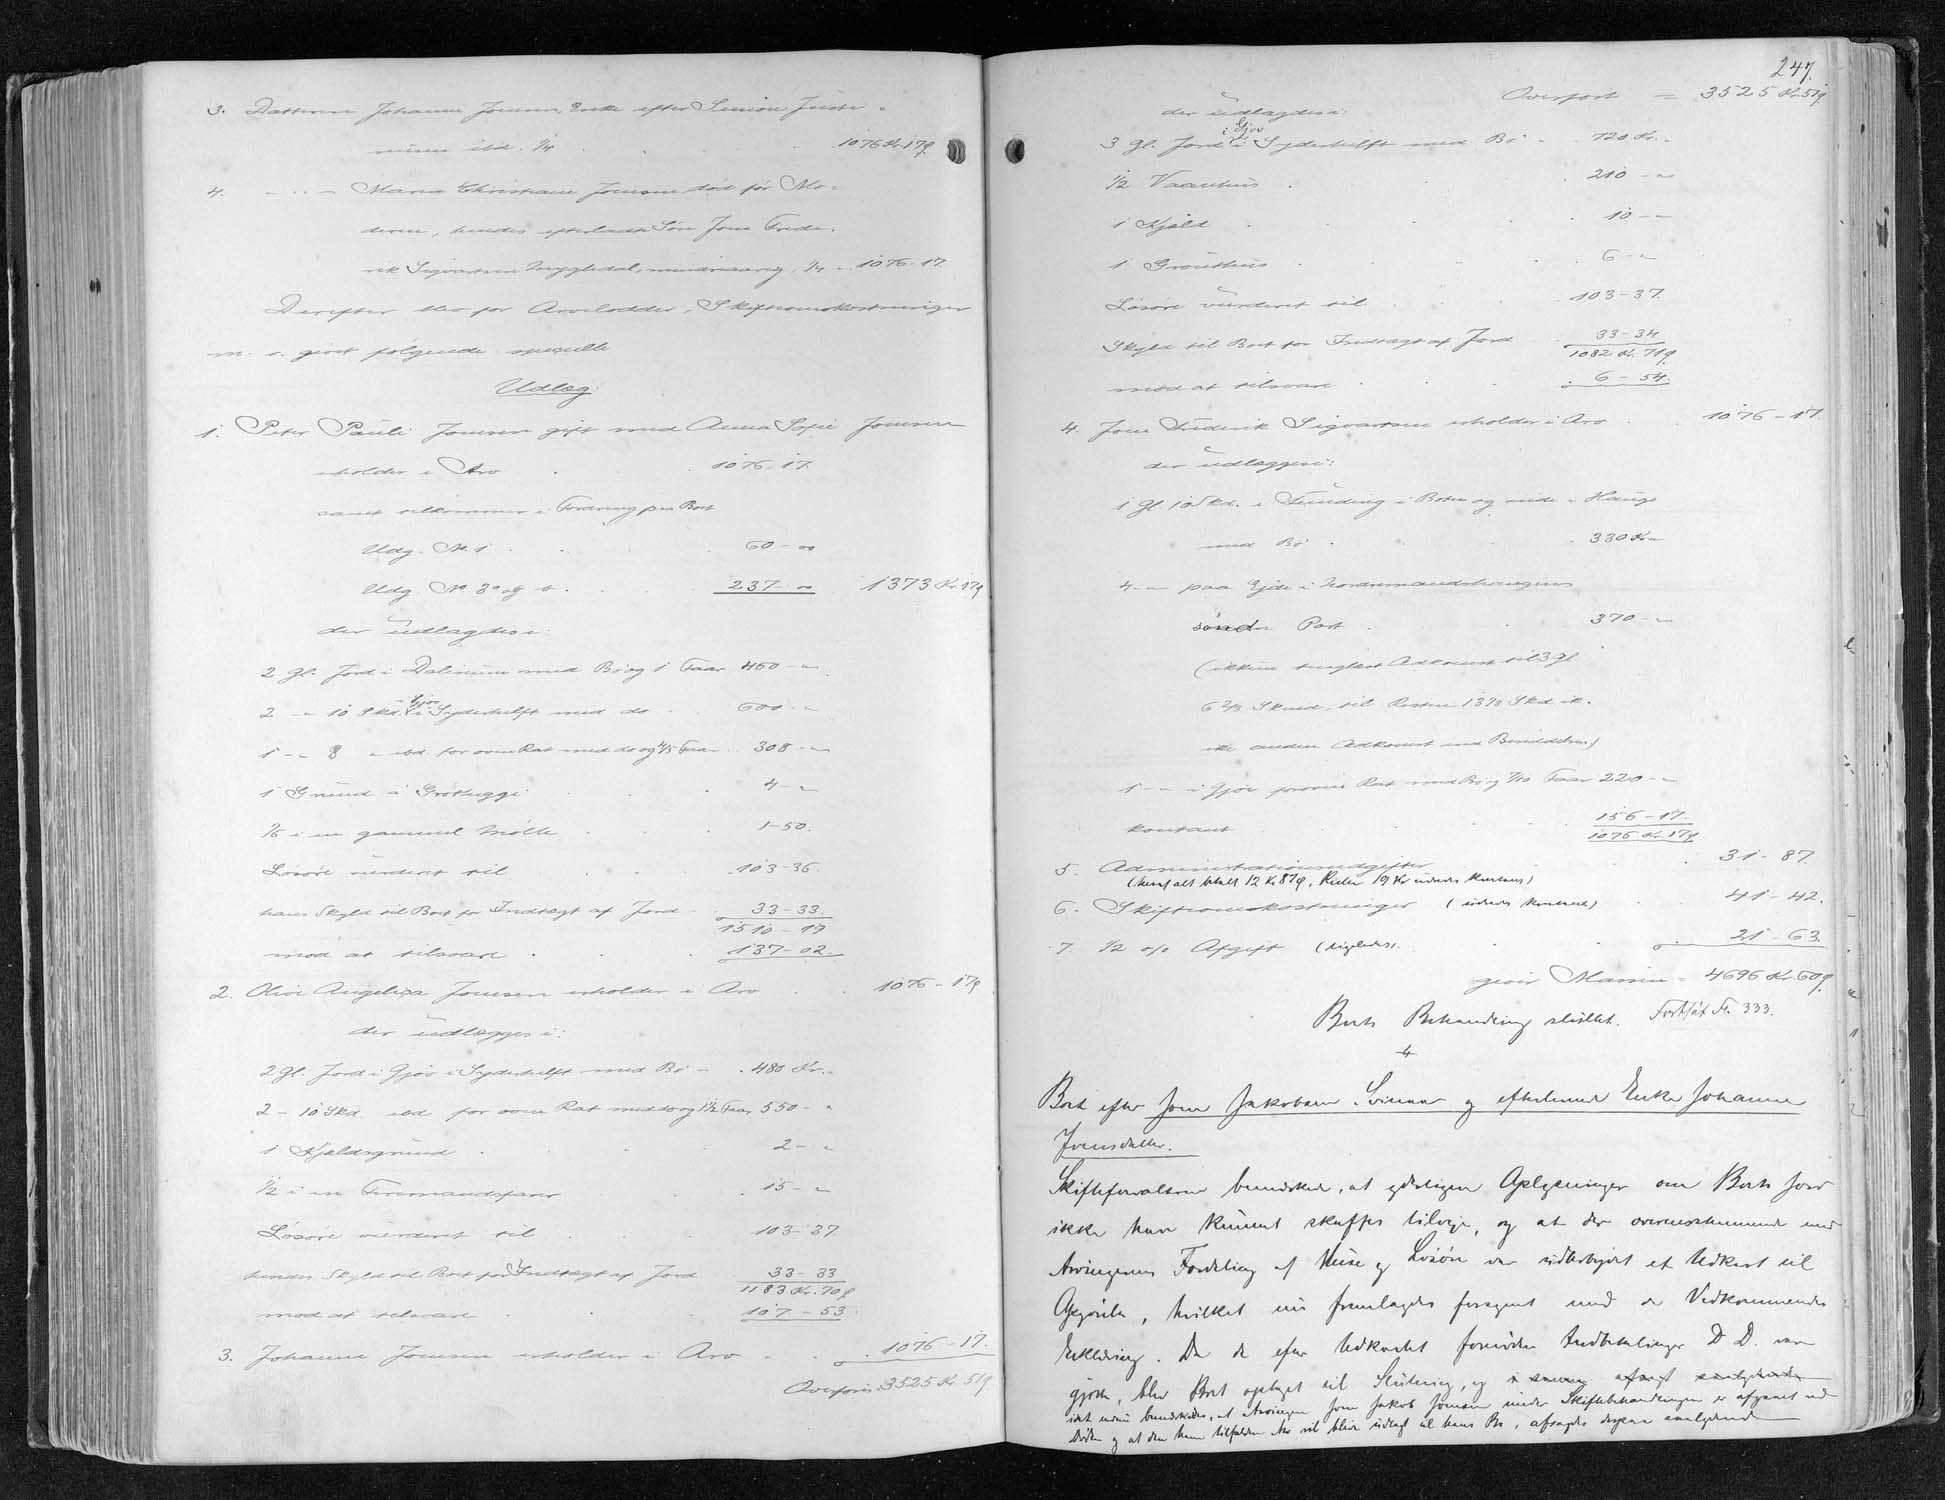 3. Datteren Johanne Joensen, Enke efter Simon Juste-
nisen ibd. 1/4 . . . 1076 Kr. 17 ø
4. — " — Maria Christiane Joensen død før Mo-
deren, hendes efterladte Søn Joen Frede-
rik Sigvartsen Mygledal, mindreaarig, 1/4 - 1076-17.
Derefter blev for Arvelodder, Skifteomkostninger
m. v. gjort følgende specielle
Udlæg:
1. Peter Pauli Joensen gift med Anna Sofie Joensen
erholder i Arv . . 1076-17.
samt tilkommer i Fordring paa Boet
Udg. No. 1 . . . 60-00
Udg. No 3 a og b . . . 237-00 1373 Kr. 17 ø
der udlagdes i:
2 Gl. Jord i Dalinum med Bø og 1 Faar 460-"
2 - " 10 Skd. i Gjov i Syderhelft med do . . 600-"
1 - " 8 " ibd. for oven Rat med do og 4/5 Faar . 308-"
1 Grund á Grøthuggi . . 4-"
1/6 i en gammel Mølle . . 1-50.
Løsøre vurderet til . . 103-36.
hans Skyld til Boet for Indtægt af Jord . 33-33.
1510-19
mod at tilsvare . . 137-02
2. Olive Angelica Joensen erholder i Arv . . 1076-17 ø
der udlægges i:
2 Gl. Jord i Gjov i Syderhelft med Bø - . 480 Kr. "
2 - 10 Skd. ibd for oven Rat med do og 1 1/2 Faar 550-"
1 Kjeldsgrund . . 2-"
1/2 i en Firemandsfar . . 15-"
Løsøre vurderet til . . 103-37.
hendes Skyld til Boet for Indtægt af Jord 33-33
1183 Kr. 70 ø
mod at tilsvare . . 107-53.
3. Johanne Joensen erholder i Arv . . 1076-17.
Overføres 3525 Kr. 51 ø
247.
Overført = 3525 Kr. 51 ø
der udlagdes i:
3 Gl. Jord i Gjov i Syderhelft med Bø . . 720 Kr. "
1/2 Vaanhus . . 210-"
1 Kjeld . . 10-"
1 Grouthus . . 6-"
Løsøre vurderet til . . 103-37.
Skyld til Boet for Indtægt af Jord 33-34
1082 Kr. 71 ø
mod at tilsvare . . 6-54.
4. Joen Frederik Sigvartsen erholder i Arv . . 1076-17.
der udlægges i:
1 Gl. 10 Skd. i Funding i Boten og Hauge
med Bø . . 330 Kr "
4 - " paa Ejde i Nordremandshaugens
søndre Part . . 370-"
(ikkun tinglæst Adkomst til 3 Gl
6 2/3 Skind, til Resten 13 1/3 Skd ik-
ke anden Adkomst end Besiddelsen)
1 - " i Gjov for oven Rat med Bø og 7/10 Faar 220-"
kontant . . 156-17.
1076 Kr. 17 ø
5. Administrationsudgifter . 31-87.
(heraf alt betalt 12 Kr 87 ø, Resten 19 Kr udredes kontant)
6. Skifteomkostninger (udredes kontant) . 41-42.
7. 1/2 o/o Afgift (ligeledes) . . 21-63.
giver Massen = 4696 Kr. 60 ø
Boets Behandling sluttet. Fortsat Fo. 333.
4
Boet efter Joen Jakobsen Svinaa og efterlevende Enke Johanne
Joensdatter.
Skifteforvalteren bemærkede, at yderligere Oplysninger om Boets Jord
ikke have kunnet skaffes tilveje, og at der overensstemmende med
Arvingernes Fordeling af Huse og Løsøre var udarbejdet et Udkast til
Opgørelse, hvilket nu fremlagdes forsynet med de Vedkommendes
Erklæring. Da de efter Udkastet fornødne Indbetalinger D. D. vare
gjorte, blev Boet optaget til Slutning, og
idet endnu bemærkedes, at Arvingen Joen Jakob Joensen under Skiftebehandlingen er afgaaet ved
Døden og at den ham tilfaldne Arv vil blive udlagt til hans Bo, afsagdes